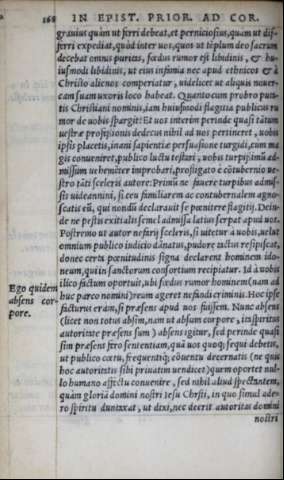 168 IN EPIST. PRIOR. AD COR.
grauius quàm ut ferri debeat, et perniciosius, quàm ut dif-
ferri expediat, quòd inter uos, quos ut têplum deo sacrum
decebat omnis puritas, fœdus rumor est libidinis, & hu-
iusmodi libidinis, ut eius infamia nec apud ethnicos & à
Christo alienos comperiatur, uidelicet ut aliquis nouer-
cam suam uxoris loco habeat. Quanto cum probro puri-
tis Christiani nominis, iam huiusmodi flagitia publicus ru
mor de uobis spargit: Et uos interim perinde quasi tãtum
uestræ professionis dedecus nihil ad uos pertineret, uobis
ipsis placetis, inani sapientiæ persuasione turgidi, cum ma
gis conueniret, publico luctu testari, uobis turpißimũ ad-
missum uehemẽter improbari, profligato è cõtubernio ue-
stro tãti sceleris autore: Primũ ne fauere turpibus admis-
sis uideamini, si ceu familiarem ac contubernalem agno-
scatis eũ, qui nondũ declarauit se pœnitere flagitij. Dein-
de ne pestis exitialis semel admissa latius serpat apud uos.
Postremo ut autor nefarij sceleris, si uitetur à uobis, uelut
omnium publico iudicio dãnatus, pudore tactus resipiscat,
donec certa pœnitudinis signa declarent hominem ido-
neum, qui in sanctorum consortium recipiatur. Id à uobis
ilico factum oportuit, ubi fœdus rumor hominem (nam ad
Ego quidem absens cor-pore.
huc parco nomini) reum ageret nefandi criminis. Hoc ipse
facturus eram, si præsens apud uos fuissem. Nunc absens
(licet non totus absim, nam ut absum corpore, ita spiritus
autoritate præsens sum) absens igitur, sed perinde quasi
sim præsens fero sententiam, quã uos quoq; sequi debetis,
ut publico cœtu, frequentiq; cõuentu decernatis (ne quis
hoc autoritatis sibi priuatim uendicet) quem oportet nul-
lo humano affectu conuenire, sed nihil aliud spectantem,
quàm gloriã domini nostri Iesu Christi, in quo simul ade-
ro spiritu duntaxat, ut dixi, nec deerit autoritas domini
nostri